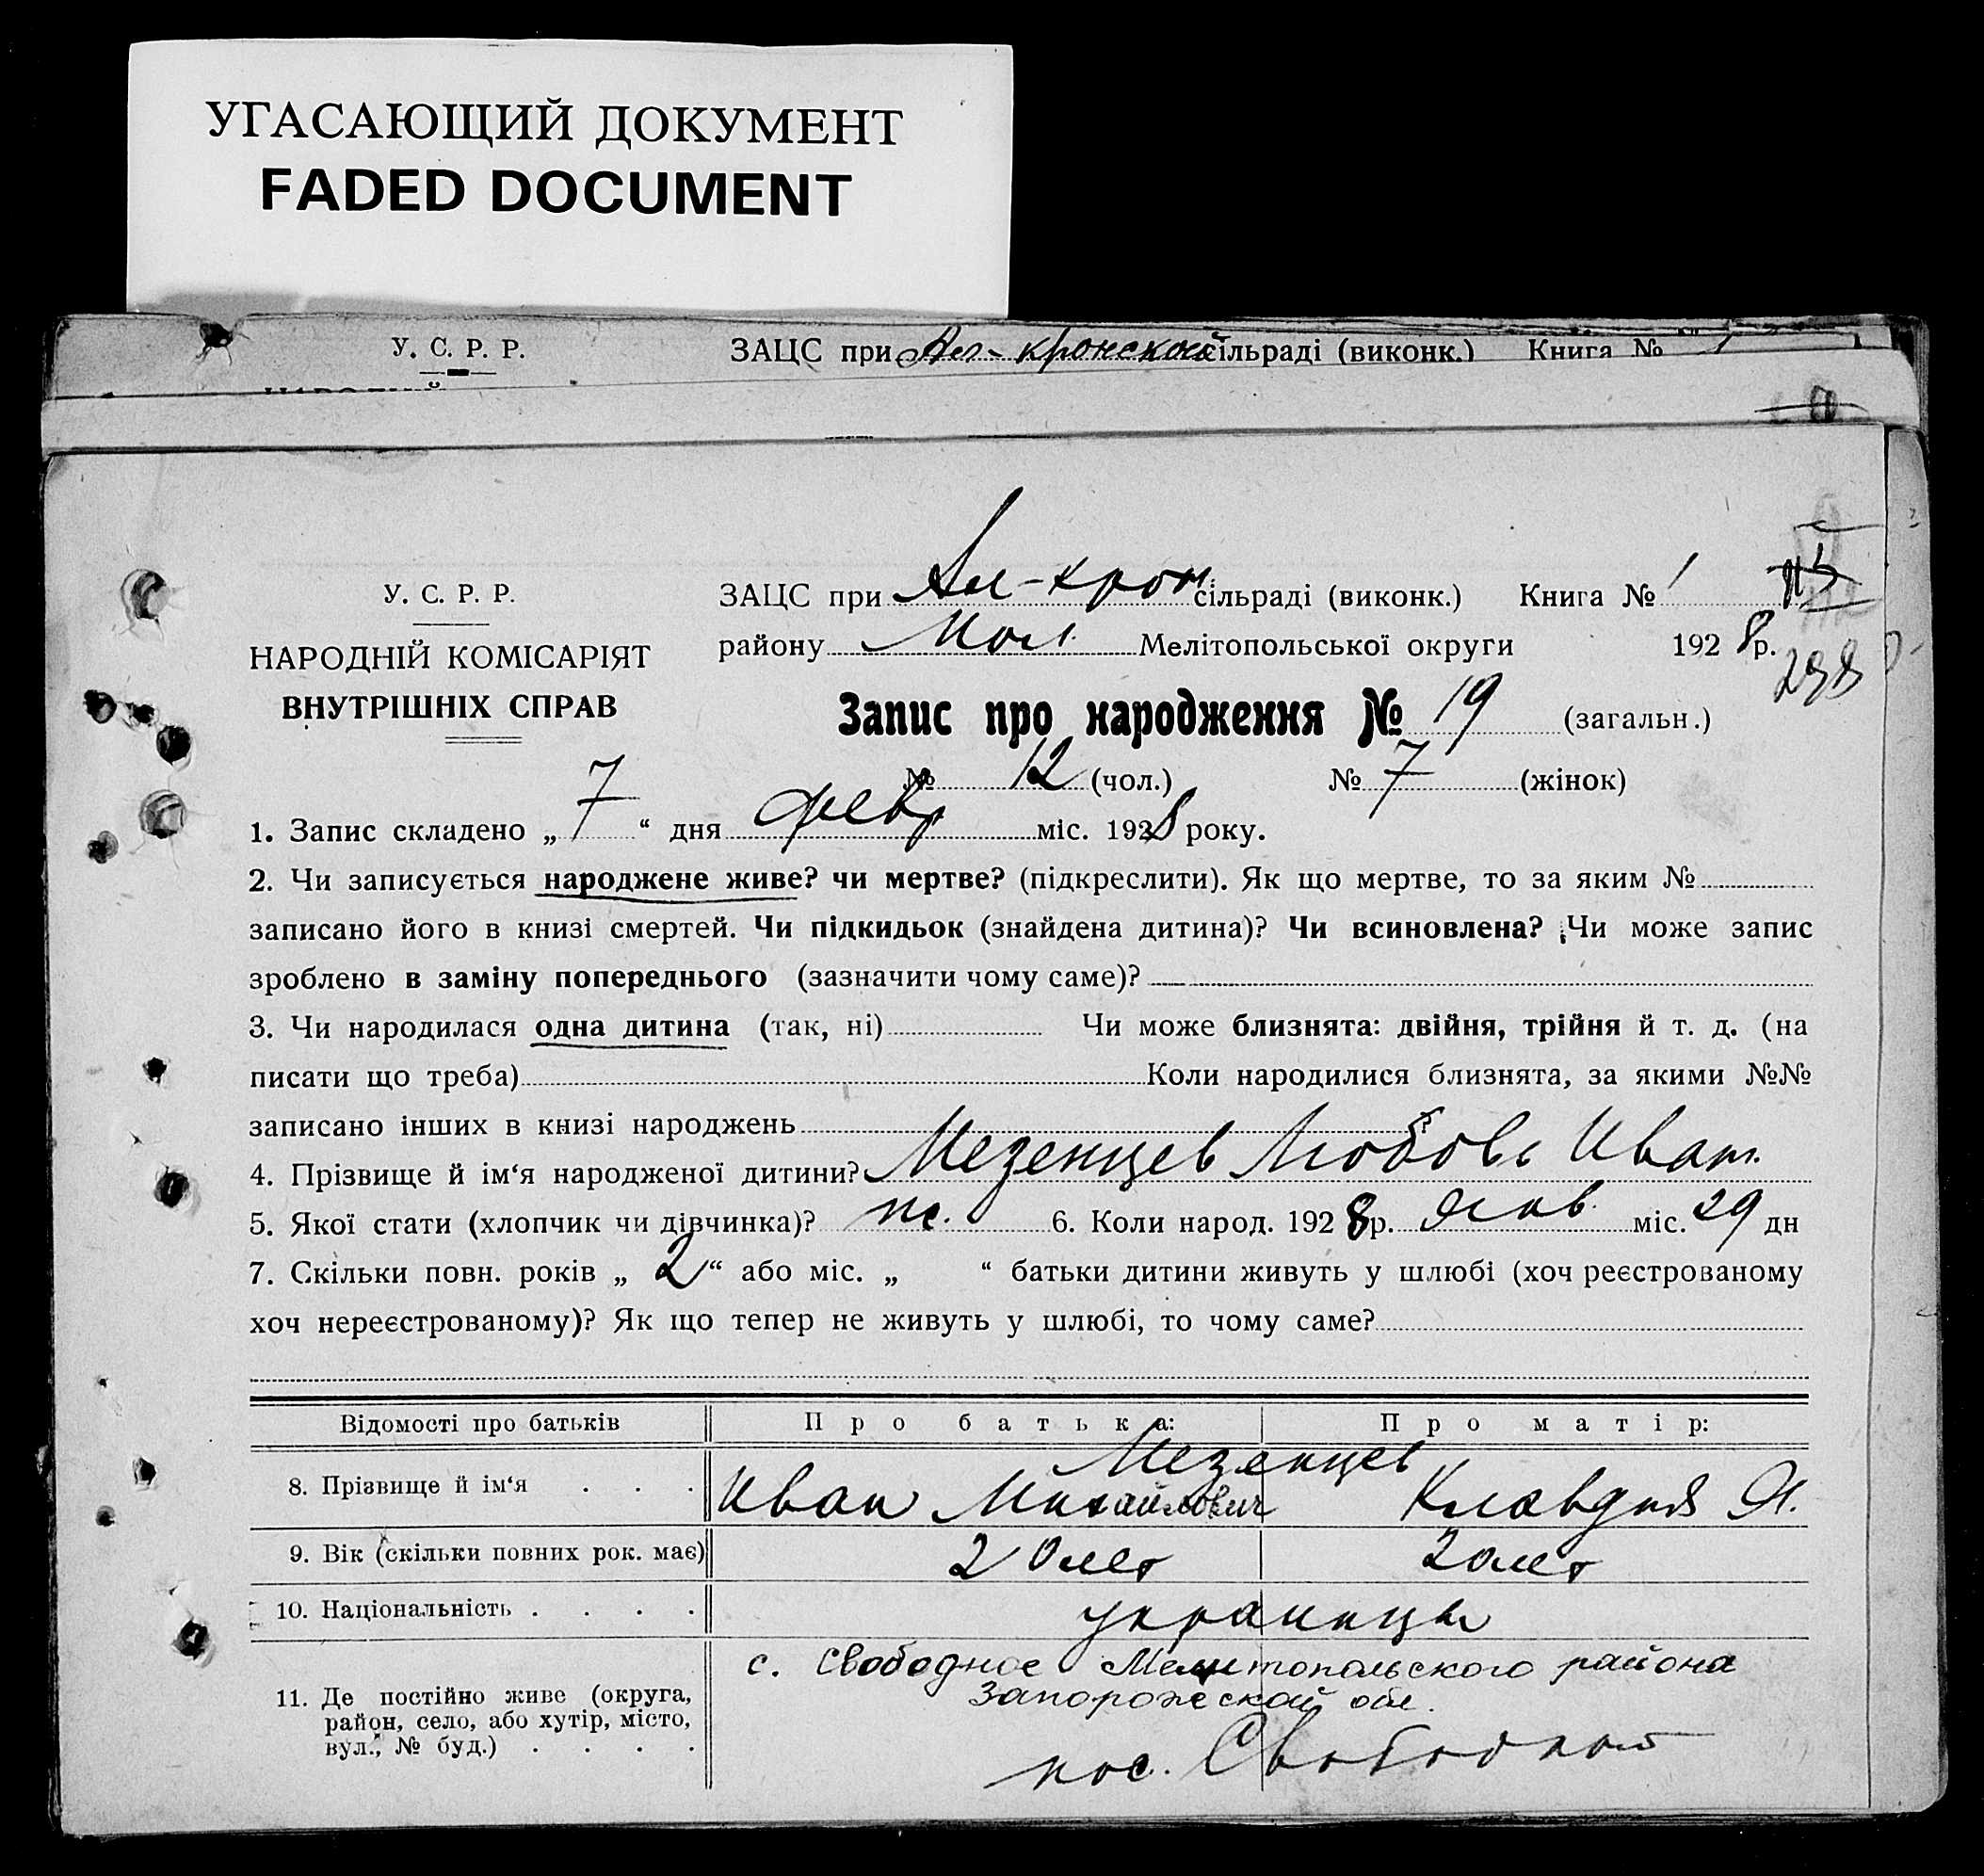 УГАСАЮЩИЙ ДОКУМЕНТ
FADED DOCUMENT
У. С. Р. Р. ЗАЦС при Ал-кронской сільраді (виконк.) Книга № 1
У. С. Р. Р.
НАРОДНІЙ КОМІСАРІЯТ
ВНУТРІШНІХ СПРАВ
ЗАЦС при Ал-крон сільраді (виконк.) Книга № 1
району Мел. Мелітопольської округи 1928 р.
Запис про народження № 19 (загальн.)
№ 12 (чол.) № 7 (жінок)
1. Запис складено „ 7 “ дня февр міс. 1928 року.
2. Чи записується народжене живе? чи мертве? (підкреслити). Як що мертве, то за яким №
записано його в книзі смертей. Чи підкидьок (знайдена дитина)? Чи всиновлена? Чи може запис
зроблено в заміну попереднього (зазначити чому саме)?
3. Чи народилася одна дитина (так, ні) Чи може близнята: двійня, трійня й т. д. (на
писати що треба) Коли народилися близнята, за якими №№
записано інших в книзі народжень ?
4. Прізвище й ім‘я народженої дитини? Мезенцев Любовь Иван.
5. Якої стати (хлопчик чи дівчинка)? ж. 6. Коли народ. 1928 р. Янв. міс. 29 дн
7. Скільки повн. років „ 2 “ або міс. „ “ батьки дитини живуть у шлюбі (хоч реєстрованому
хоч нереєстрованому)? Як що тепер не живуть у шлюбі, то чому саме?
Відомості про батьків Про батька: Про матір:
Мезенцев
8. Прізвище й ім‘я . . . Иван Михайлович Клавдия Я.
9. Вік (скільки повних рок. має) 20 лет 20 лет
10. Національність . . . . украинцы
с. Свободное Мелитопольского района
Запорожской обл.
11. Де постійно живе (округа,
район, село, або хутір, місто,
вул., № буд.) . . . .
пос. Свободный